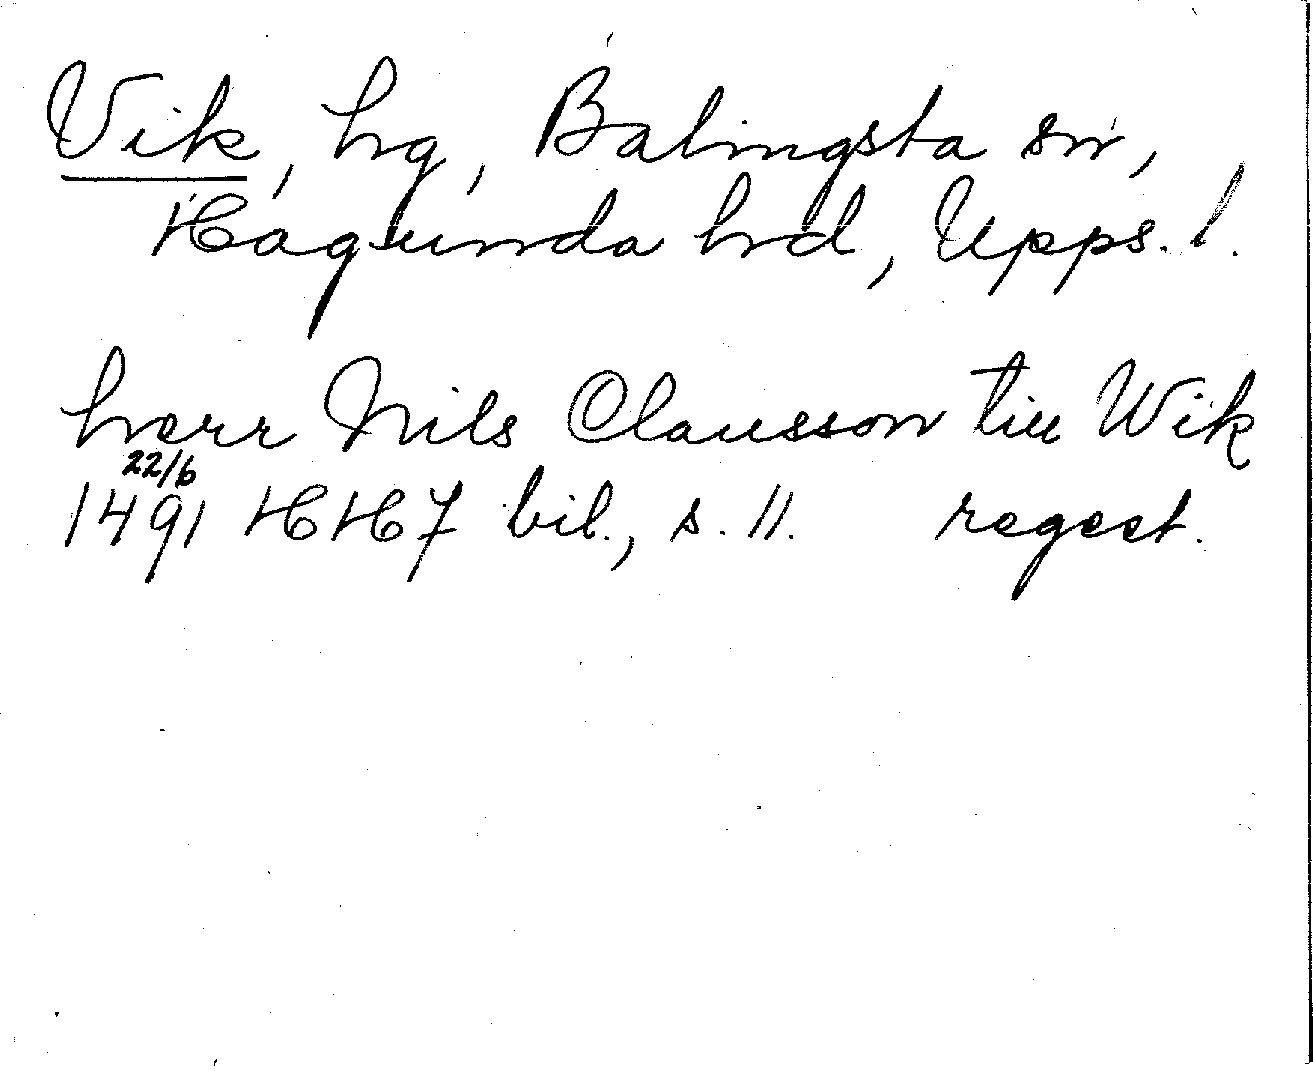 Vik, hg, Balingsta sn,
Hagunda hd, Upps. l.
herr Nils Clausson till Wik
22/6
1491 HH 7 bil., s. 11. regest.